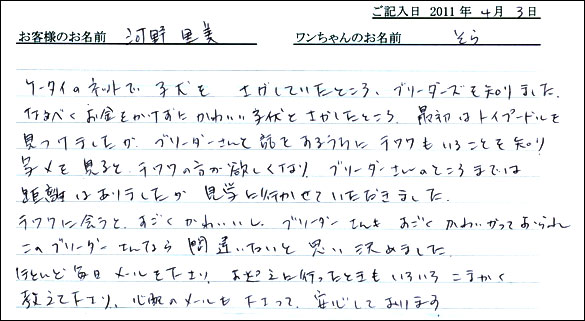 ご記入日 2011年 4月 3日
お客様のお名前 河野 里美 ワンちゃんのお名前 そら
ケータイのネットで 子犬を さがしていたところ、ブリーダーズを知りました。
なるべく お金をかけずに かわいい子犬を さがしたところ、最初は トイプードルを
見つけましたが ブリーダーさんと 話をするうちに チワワも いることを 知り
写メを 見ると チワワの方が 欲しくなり ブリーダーさんの ところまでは
距離は ありましたが 見学に行かせて いただきました。
チワワに会うと、すごく かわいいし、ブリーダーさんも すごく かわいがってあられ
この ブリーダーさんなら 間違いないと 思い 決めました。
ほとんど毎日 メールを下さり、お迎えに行ったときも いろいろ こまかく
教えて下さり、心配のメールも 下さって、安心しております。